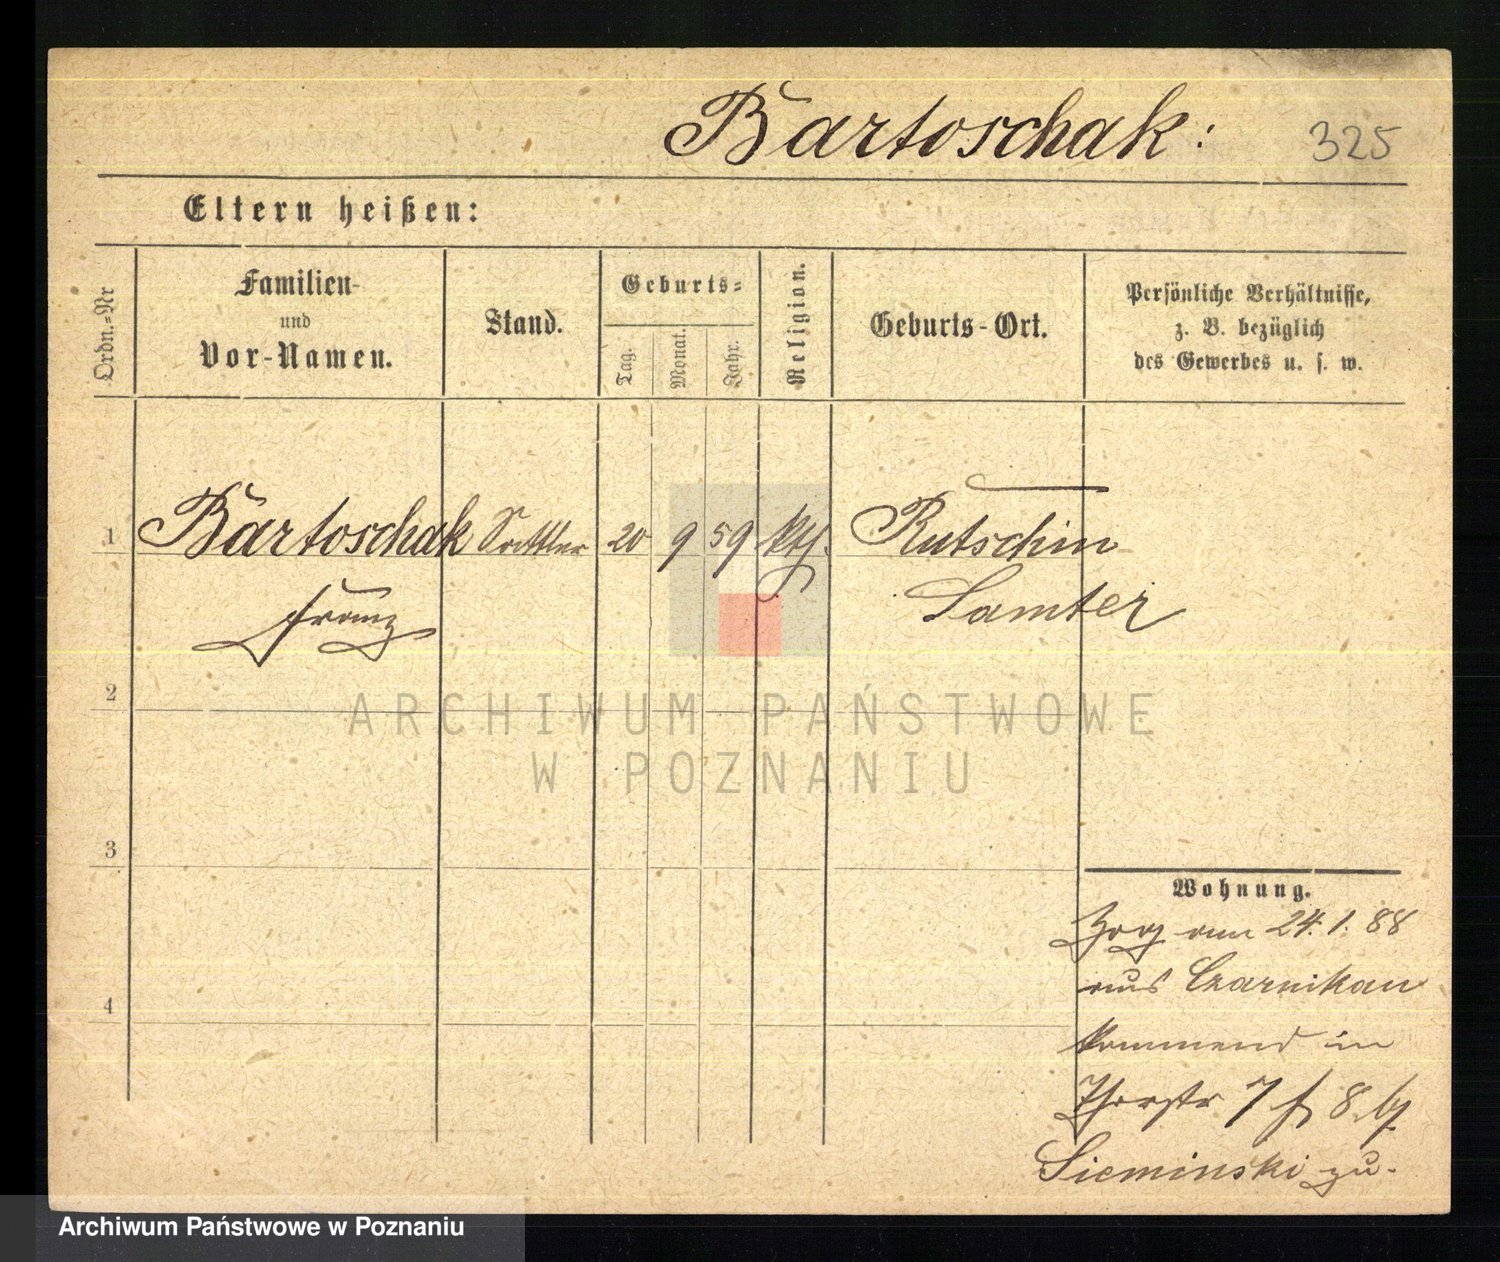 Bartoschak:
325
Eltern heißen:
Ordn.-Nr
Familien-
und
Vor-Namen.
Stand.
Geburts-
Tag.
Monat.
Jahr.
Religion.
Geburts-Ort.
Persönliche Verhältnisse,
z. B. bezüglich
des Gewerbes u. s. w.
1 Bartoschak Sattler 20 9 59 kth. Rutschin
Franz Samter
2
ARCHIWUM PAŃSTWOWE
W POZNANIU
3
Wohnung.
Zog am 24.1.88
aus Czarnikau
4
kommend in
7 8 b/
Sieminski zu.
Archiwum Państwowe w Poznaniu